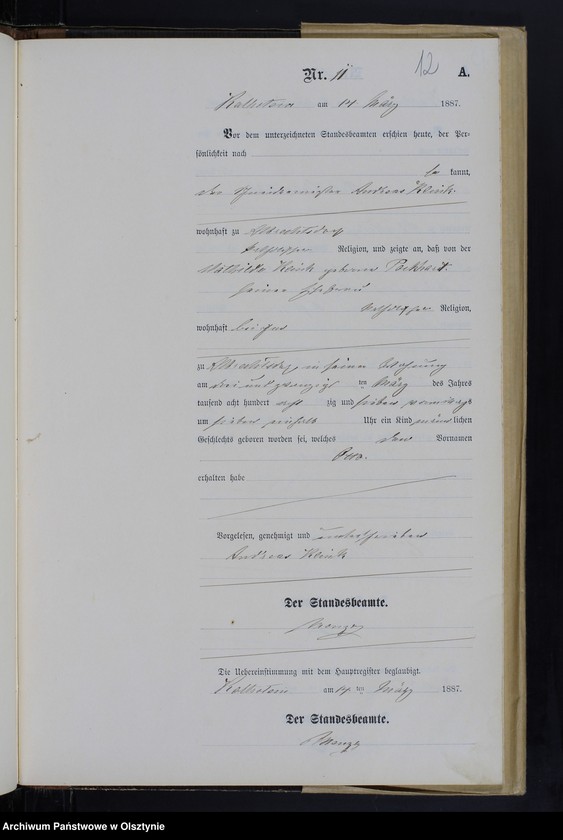 12
Nr. 11 A.
Kallstein am 14 März 1887.
Vor dem unterzeichneten Standesbeamten erschien heute, der Per-
sönlichkeit nach
be kannt,
der Schneidermeister Andreas Klink
wohnhaft zu Albrechtsdorf
katholischer Religion, und zeigte an, daß von der
Mathilde Klink geborene
seiner Ehefrau
katholischer Religion,
wohnhaft bei ihm
zu Albrechtsdorf in seiner Wohnung
am ten März des Jahres
tausend acht hundert acht zig und sieben vormittags
um sieben einhalb Uhr ein Kind männ lichen
Geschlechts geboren worden sei, welches den Vornamen
Otto.
erhalten habe
Vorgelesen, genehmigt und unterschrieben
Andreas Klink
Der Standesbeamte.
Die Uebereinstimmung mit dem Hauptregister beglaubigt.
Kallstein am 14 ten März 1887.
Der Standesbeamte.
Archiwum Państwowe w Olsztynie